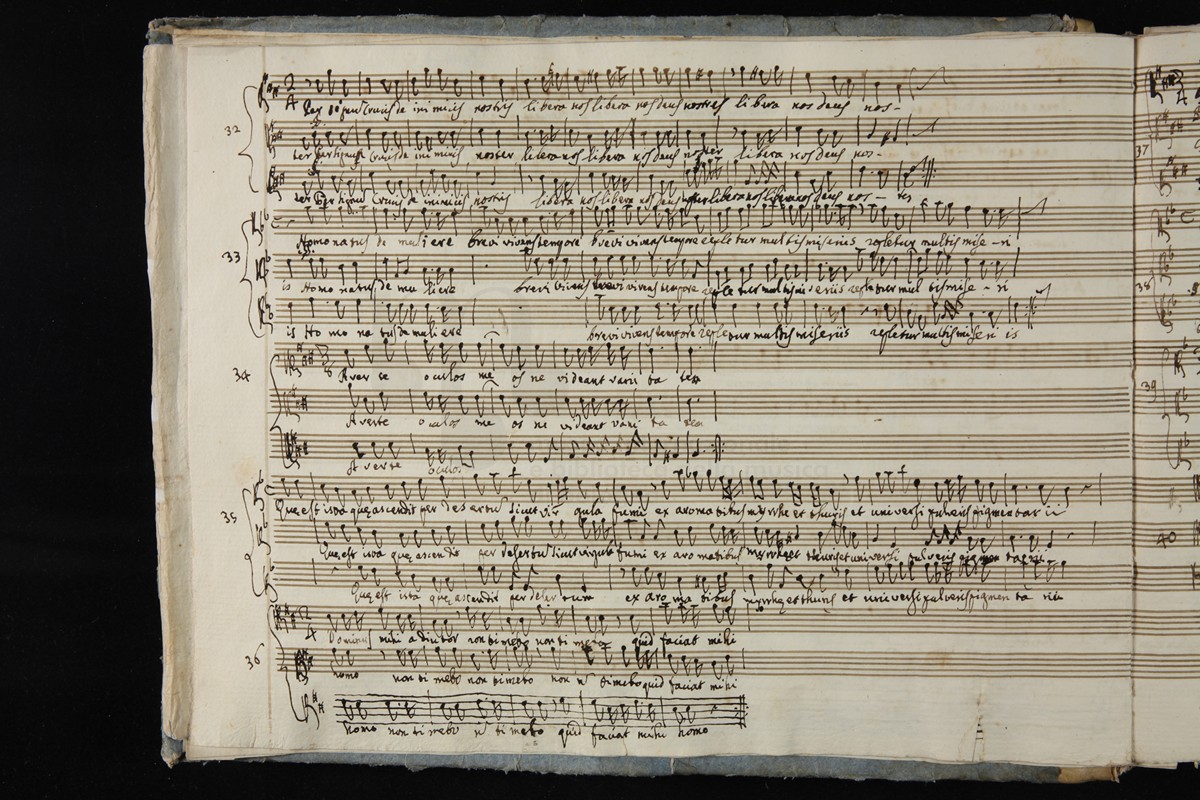 32
inimicis nostris libera nos libera nos deus nostres libera nos deus nos-
ter inimicis noster libera nos libera nos deus noster libera nos deus nos-
ter inimicis nostris libera nos libera nos deus libera nos libera nos deus nos- ter
33
Homo natus de muliere brevi vivens tempore brevi vivens tempore repletur multis miseriis repletur multis mise-ri
is Homo natus de muliere brevi vivens brevi vivens tempore repletur multis miseriis repletur mul tis mise-ri
is Ho mo na tus de muliere brevi vivens tempore repletur multis miseriis repletur multis miseri is
34
Aver te oculos me os ne videant vani ta
Averte oculos me os ne videant vani ta
A verte oculos
35
Que est ista que ascendit per desertu sicut vir gula fumi ex aromatibus myrrhe et thuris et universi pulveris pigmentar ii
Que est ista que ascendit per desertu sicut virgula fumi ex aro matibus myrrhe et thuris et universi pulveris pigmen tarii
Que est ista que ascendit per deser tum ex aro ma tibus myrrhe et thuris et universi pulveris pigmen ta rii
36
Dominus mihi adiutor non timebo non ti mebo quid faciat mihi
homo non ti mebo non timebo non timebo quid faciat mihi
homo non ti mebo ti mebo quid faciat mihi homo
37
38
39
40